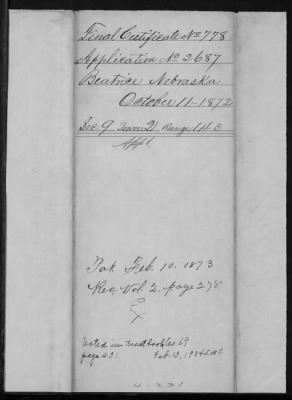 Final Certificate No 778
Application No 2687
Beatrice Nebraska
October 11-1872
Sec 9 Town 2 Range 14 E
Appl.
Pat. Feb. 10. 1873
Rec. Vol. 2. page 278
Ex
Noted in tract book 69
page 231. Feb. 13, 1934
4-221